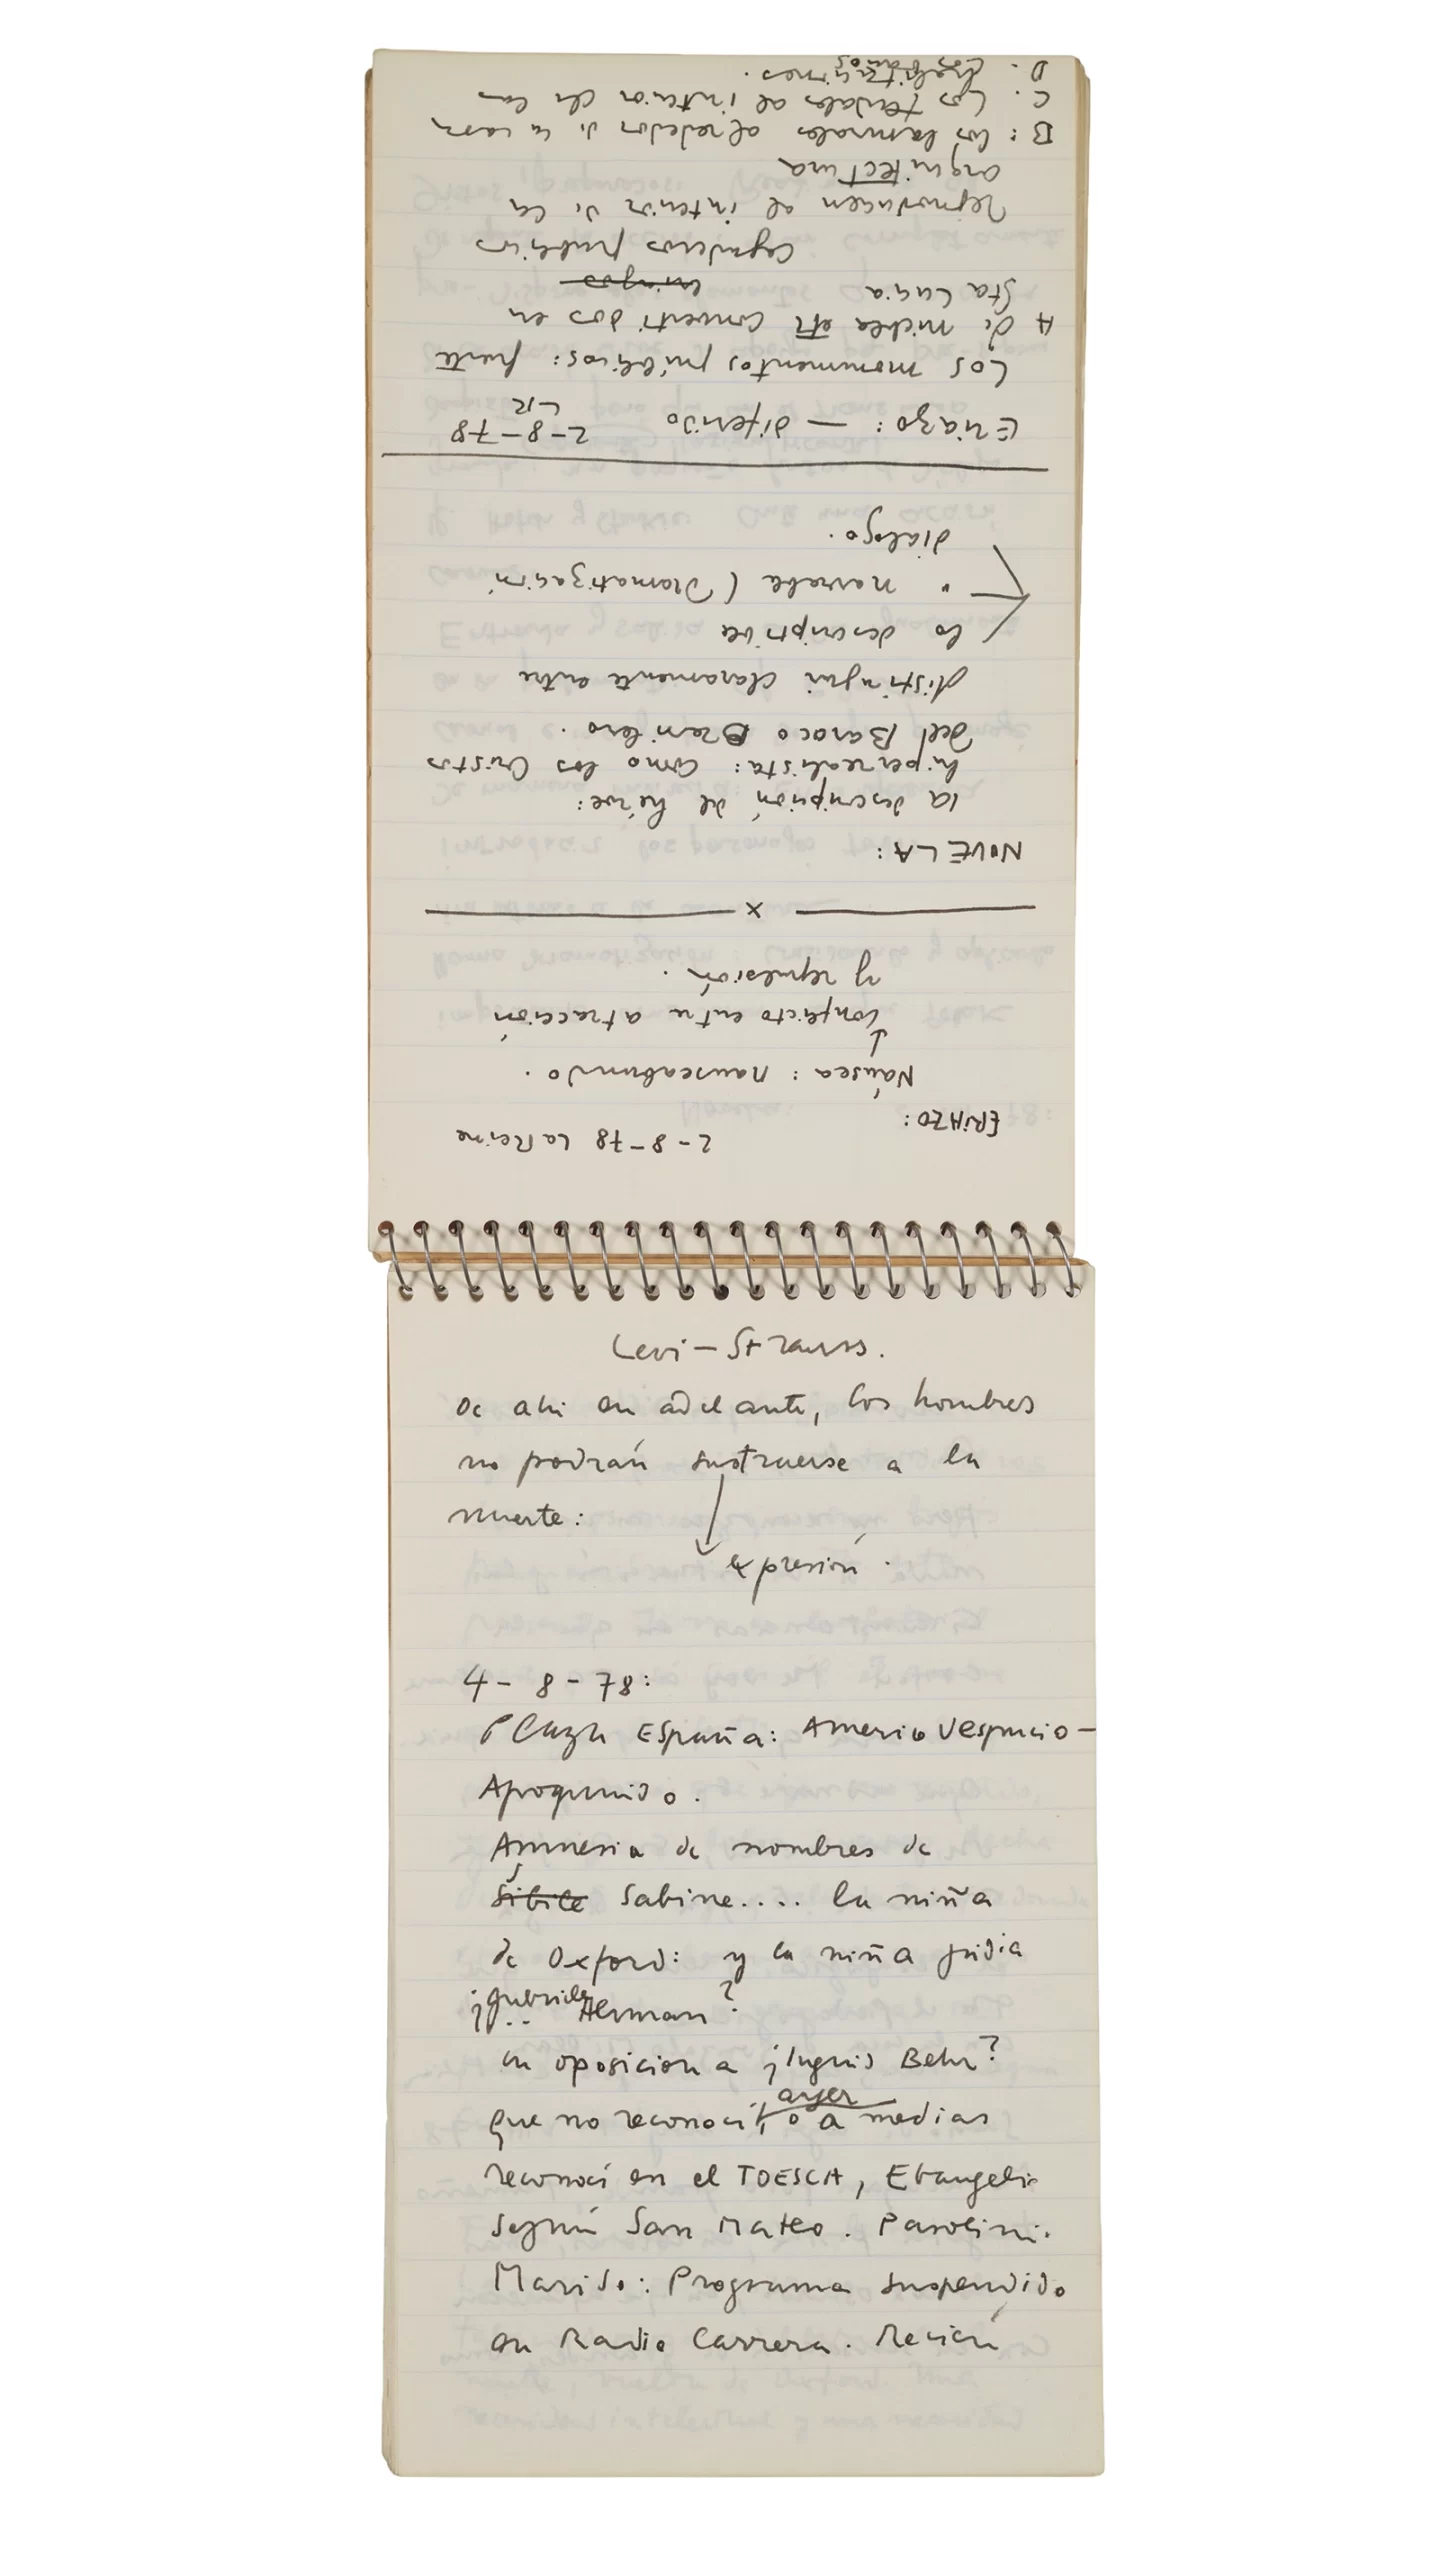 2-8-78 La Reine
ERIAZO:
Náusea: nauseabundo.
↓
Conflicto entre atracción
y repulsión.
x
NOVELA:
la descripción del héroe:
hiperrealista: como los Cristos
del Baroco Brasilero.
distingui claramente entre
lo descriptible
" narrable (Dramatización
dialogo.
Eriazo: — diferido 2-8-78
Los monumentos públicos: frente
A di michea convertidos en
Sta Lucia
cagaderos publicos
reproducen al interior di la
arquitectura
B: los alrededor di la casa
C. Los al interior de las
habitaciones.
D. Los baños
Levi-Strauss.
de ahi en adelante, los hombres
no podrán sustraerse a la
muerte:
expresión.
4-8-78:
Plaza España: Americo Vespucio-
Apoquindo.
Amnesia de nombres de
Sibile Sabine.... la niña
de Oxford: y la niña judia
¿Gabriela Herman?
en oposicion a ¿Ingrid Behr?
que no reconocí, ayer o a medias
reconocí en el TOESCA, Evangelio
según San Mateo. Pasolini.
Marido: Programa suspendido
en Radio Carrera. Recién